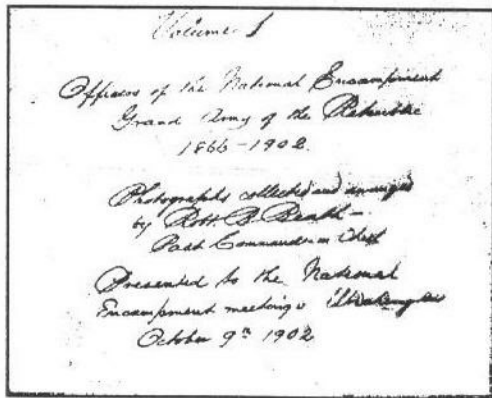 Volume 1
Officers of the National Encampment
Grand Army of the Republic
1866-1902.
Photographs collected and arranged
by Robt. B. Beath -
Past Commander in Chief
Presented to the National
Encampment meeting
October 9th 1902